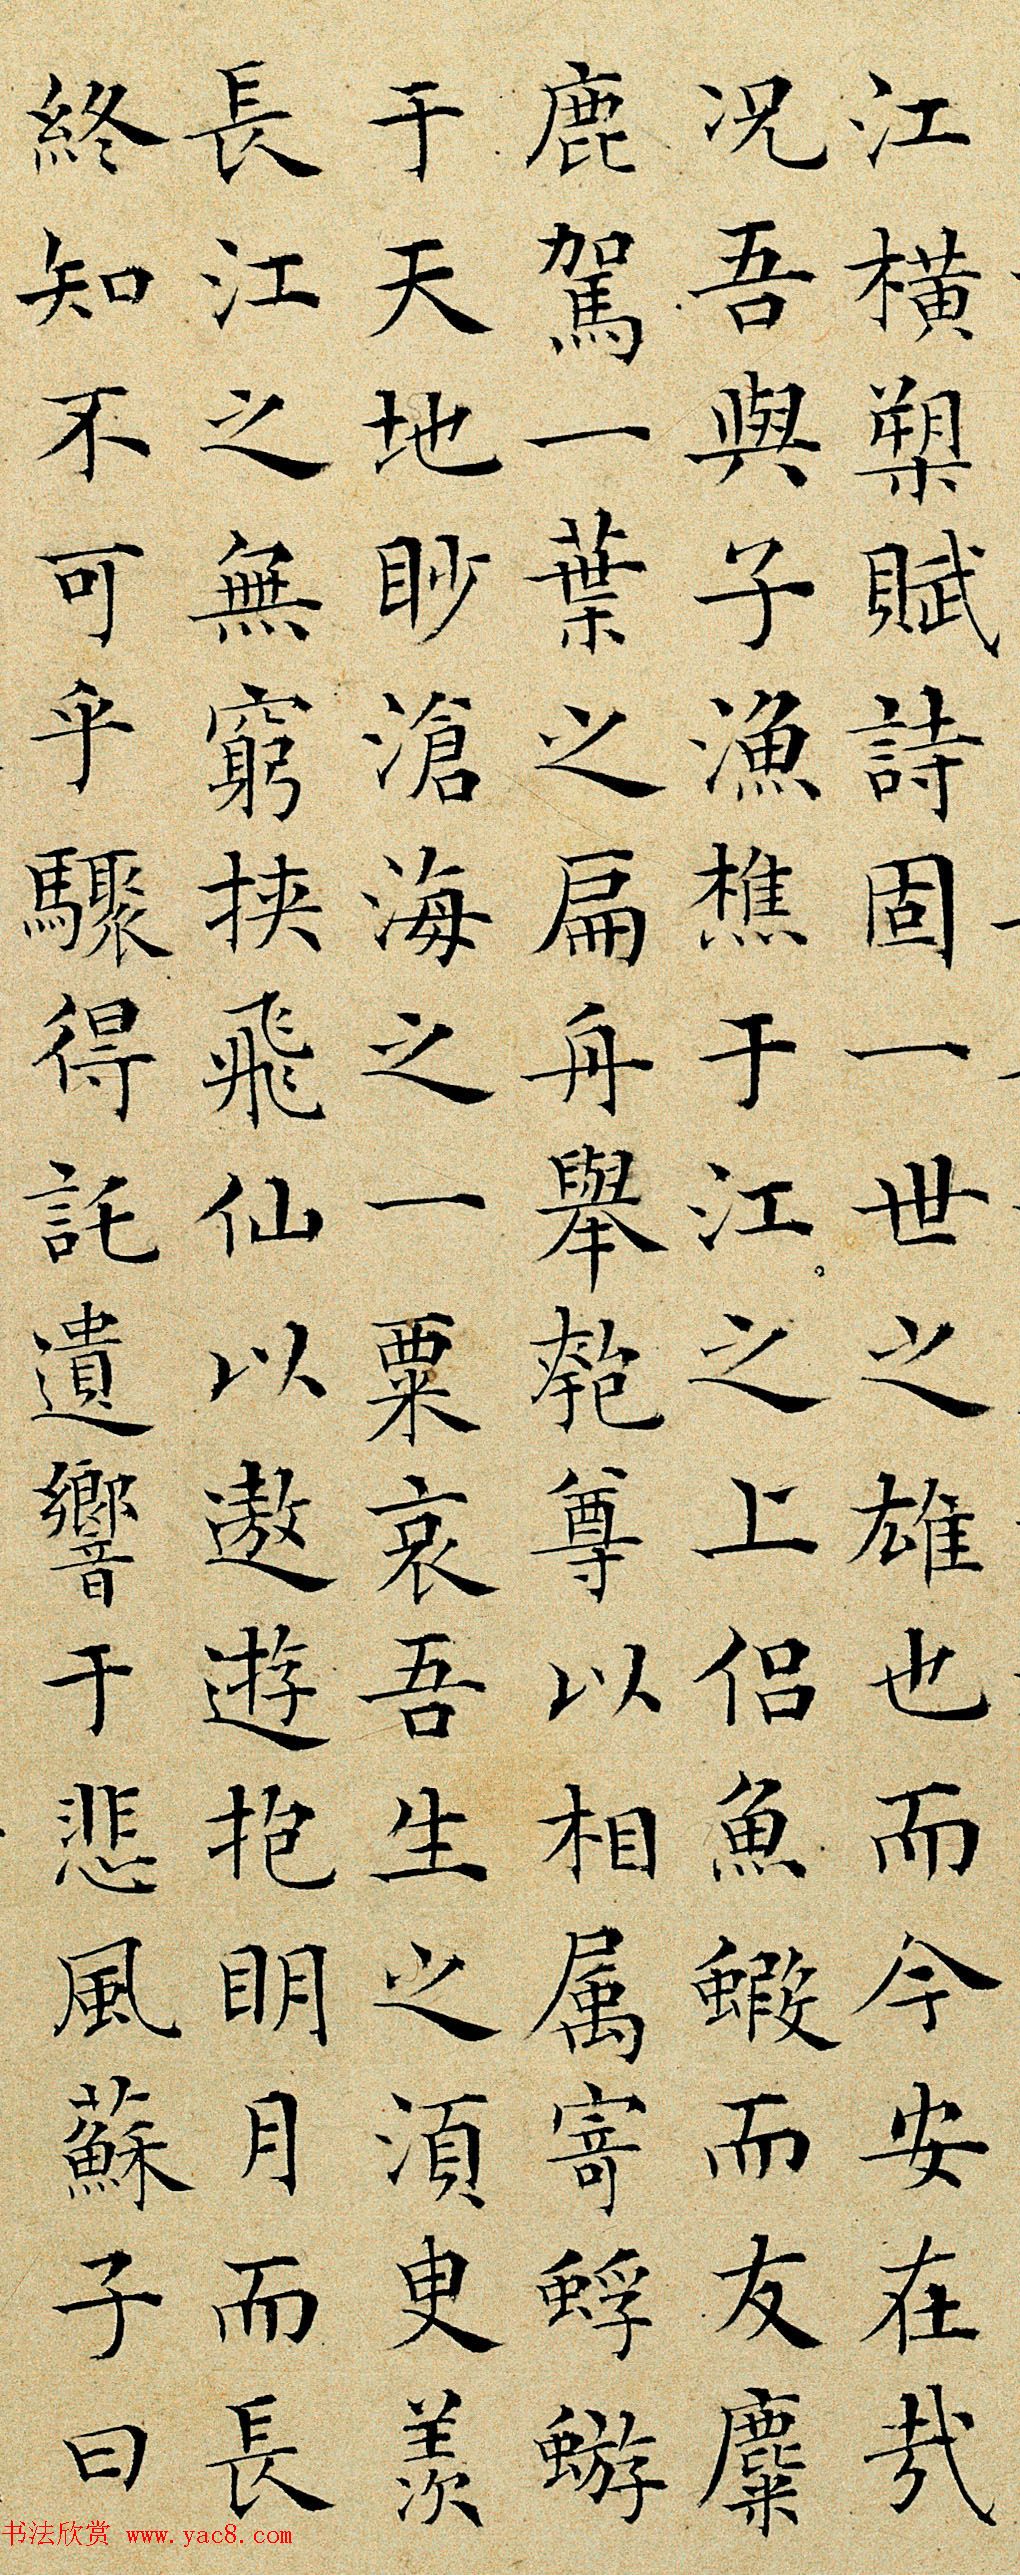 江橫槊賦詩固一世之雄也而今安在哉
况吾與子漁樵于江之上侣魚蝦而友麋
鹿駕一葉之扁舟舉匏尊以相属寄蜉蝣
于天地眇滄海之一粟哀吾生之須臾羨
長江之無窮挾飛仙以遨遊抱明月而長
終知不可乎驟得託遺響于悲風蘇子曰
书法欣赏 www.yac8.com